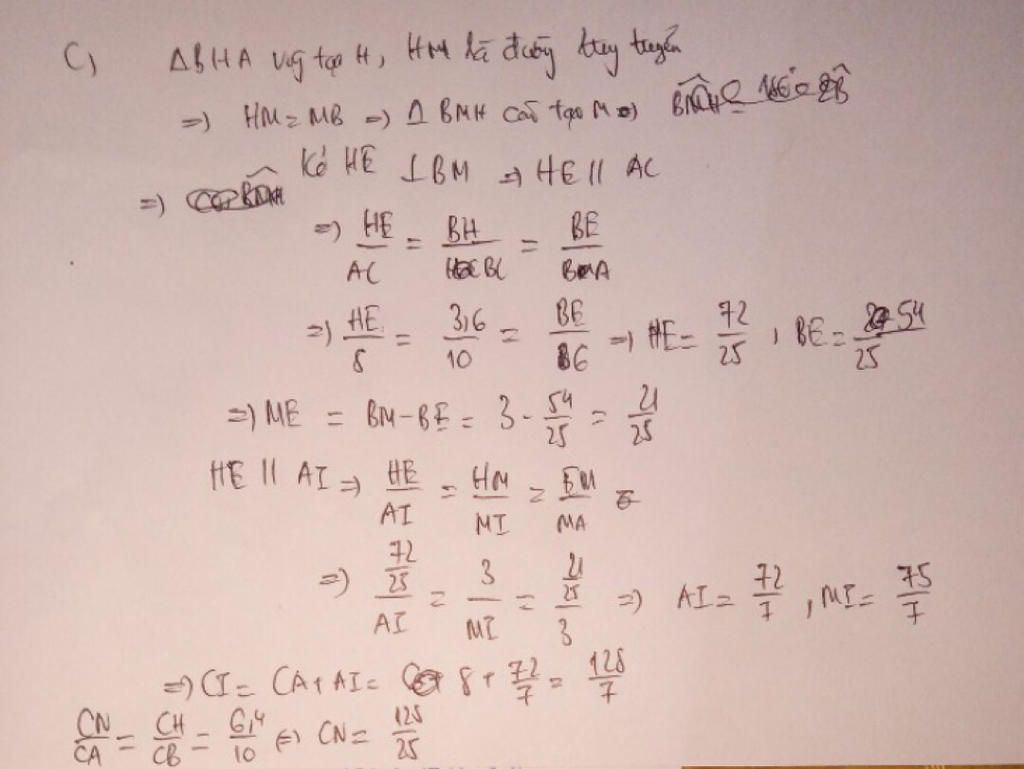 C, ΔBHA vg tại H, HM là đường trung tuyến
=) HM = MB =) Δ BMH cân tại M =)
Kẻ HE ⊥ BM =) HE // AC
=)
=) HE/AC = BH/BC = BE/BA
=) HE/8 = 3,6/10 = BE/6 =) HE = 72/25 , BE = 54/25
=) ME = BM - BE = 3 - 54/25 = 21/25
HE // AI =) HE/AI = HM/MI = EM/MA =
=) 72/25/AI = 3/MI = 21/25/3 =) AI = 72/7 , MI = 75/7
=) CI = CA + AI = 8 + 72/7 = 128/7
CN/CA = CH/CB = 6,4/10 (=) CN = 128/25